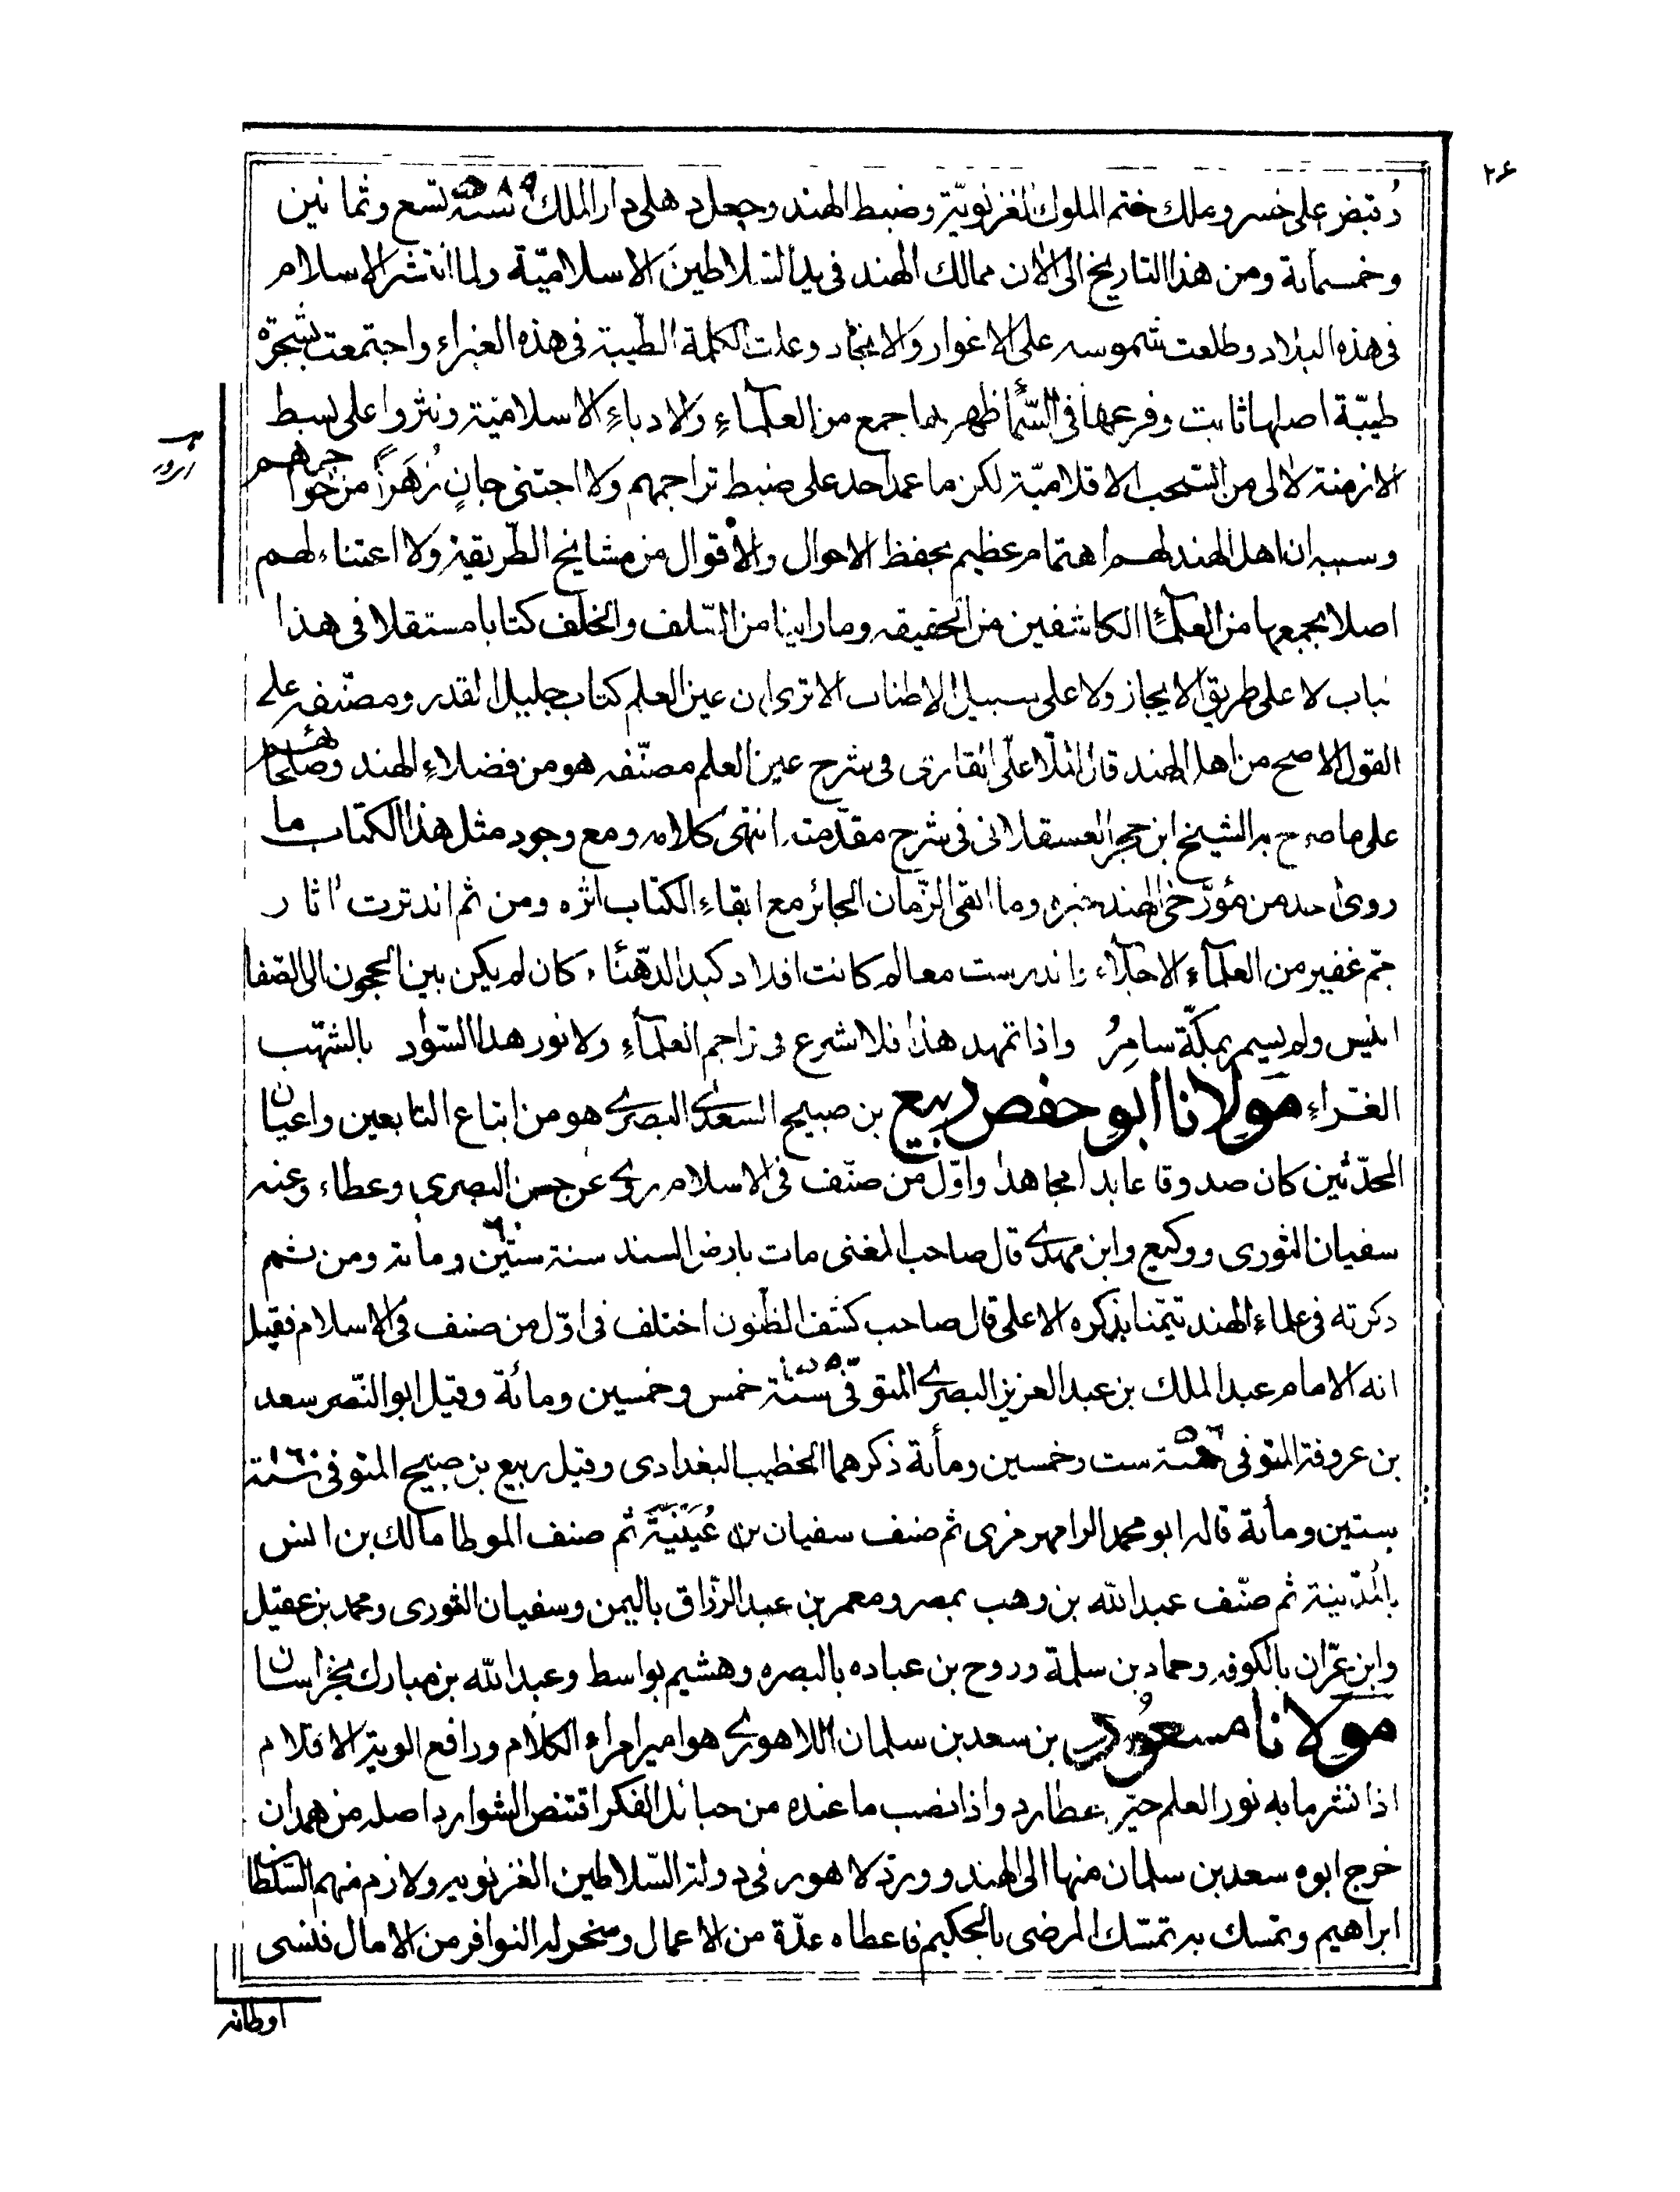 ٢٦
وقبض على خسرو ملك ختم الملوك الغزنوية وضبط الهند وجعل دهلى دار الملك ٥٨٩ سنة تسع وثمانين
وخمسمأية ومن هذا التاريخ الى الان ممالك الهند فى يد السلاطين الاسلاميّة ولما انتشر الاسلام
فى هذه البلاد وطلعت شموسه على الاغوار والانجاد وعلت الكلمة الطّيبة فى هذه الغبراء واجتمعت بشجرة
طيبّة اصلها ثابت وفرعها فى السَّمآ ظهر بها جمع من العلمآءِ والادباءِ الاسلاميّة ونثروا على بسط
الازمنة لالى من السّحب الاقلاميّة لكن ما عمد احد على ضبط تراجمهم ولا اجتنى جانٍ زُهَراً من جواهرهم
وسببه ان اهل الهند لهم اهتمام عظيم بحفظ الاحوال والأقوال من مشايخ الطّريقة ولا اعتناء لهم
اصلا بجمعها من العلمآ الكاشفين من الحقيقه وما راينا من السّلف والخلف كتابا مستقلا فى هذا
لباب لا على طريق الايجاز ولا على سبيل الاطناب الا ترى ان عين العلم كتاب جليل القدر ومصنّفه على
القول الاصح من اهل الهند قال الملّا علّى القارى فى شرح عين العلم مصنّفه هو من فضلاءِ الهند وصلحائهم
على ما صرح به الشيخ ابن حجر العسقلانى فى شرح مقدّمته انتهى كلامه ومع وجود مثل هذا الكتاب ما
روى احد من مؤرّخى الهند خبره وما ابقى الزّمان الجائر مع ابقاءِ الكتاب اثره ومن ثم اندثرت اثار
جمّ غفير من العلمآء الاجلآء واندرست معالم كانت افلاد كبد الدّهنآء كان لم يكن بين الحجون الى الصّفا
انيس ولم يسمر بمكّة سامِرُ واذا تمهد هذا فلاشرع فى تراجم العلمآءِ ولانور هذا السّواد بالشّهب
الغرّاءِ مَولانا ابو حفص ربيع بن صبيح السعدى البصرى هو من اتباع التابعين واعيان
المحدّثين كان صدوقا عابدا مجاهدا واوّل من صنّف فى الاسلام روى عن حسن البصرى وعطاء وعنه
سفيان الثورى ووكيع وابن مهدى قال صاحب المغنى مات بارض السند سنة ستّين ومأته ومن ثم
ذكرته فى علماءِ الهند تيمّنا بذكره الاعلى قال صاحب كشف الظّنون اختلف فى اوّل من صنف فى الاسلام فقيل
انه الامام عبد الملك بن عبد العزيز البصرى المتوفّى ١٥٥ سنة خمس وخمسين ومائة وقيل ابو النّصر سعد
بن عروفة المتوفى سنة ست وخمسين ومأة ذكرهما الخطيب البغدادى وقيل ربيع بن صبيح المتوفى ١٦٠ سنة
ستين ومأة قاله ابو محمد الرامهرمزى ثم صنف سفيان بن عُيَيْنَة ثم صنف الموطا مالك بن انس
بالمدّينة ثم صنّف عبد الله بن وهب بمصر ومعمر بن عبد الرّزاق باليمن وسفيان الثورى ومحمد بن عقيل
وابن عمّران بالكوفه وحماد بن سلمة وروح بن عباده بالبصره وهشيم بواسط وعبد الله بن مبارك بخراسان
مَولانا مسعُود بن سعد بن سلمان اللاهورى هو امير امراء الكلام ورافع الوية الاقلام
اذا نثر ما به نور العلم حيّر عطارد واذا نصب ما عنده من حبائل الفكر اقتنص الشوارد اصله من همدان
خرج ابوه سعد بن سلمان منها الى الهند وورد لاهور فى دولة السّلاطين الغزنويه ولازم منهم السّلطان
ابراهيم وتمسك به تمسّك المرضى بالحكيم فاعطاه عدّة من الاعمال وسخر له النوافر من الامال فنسى
اوطانه